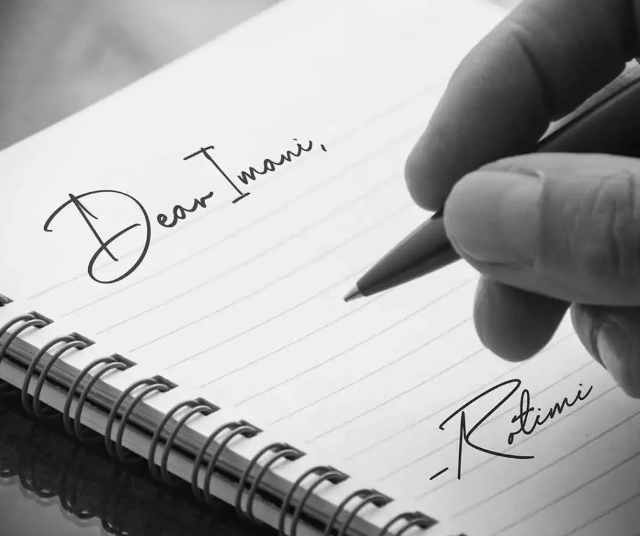 Dear Imani,
-Rotimi